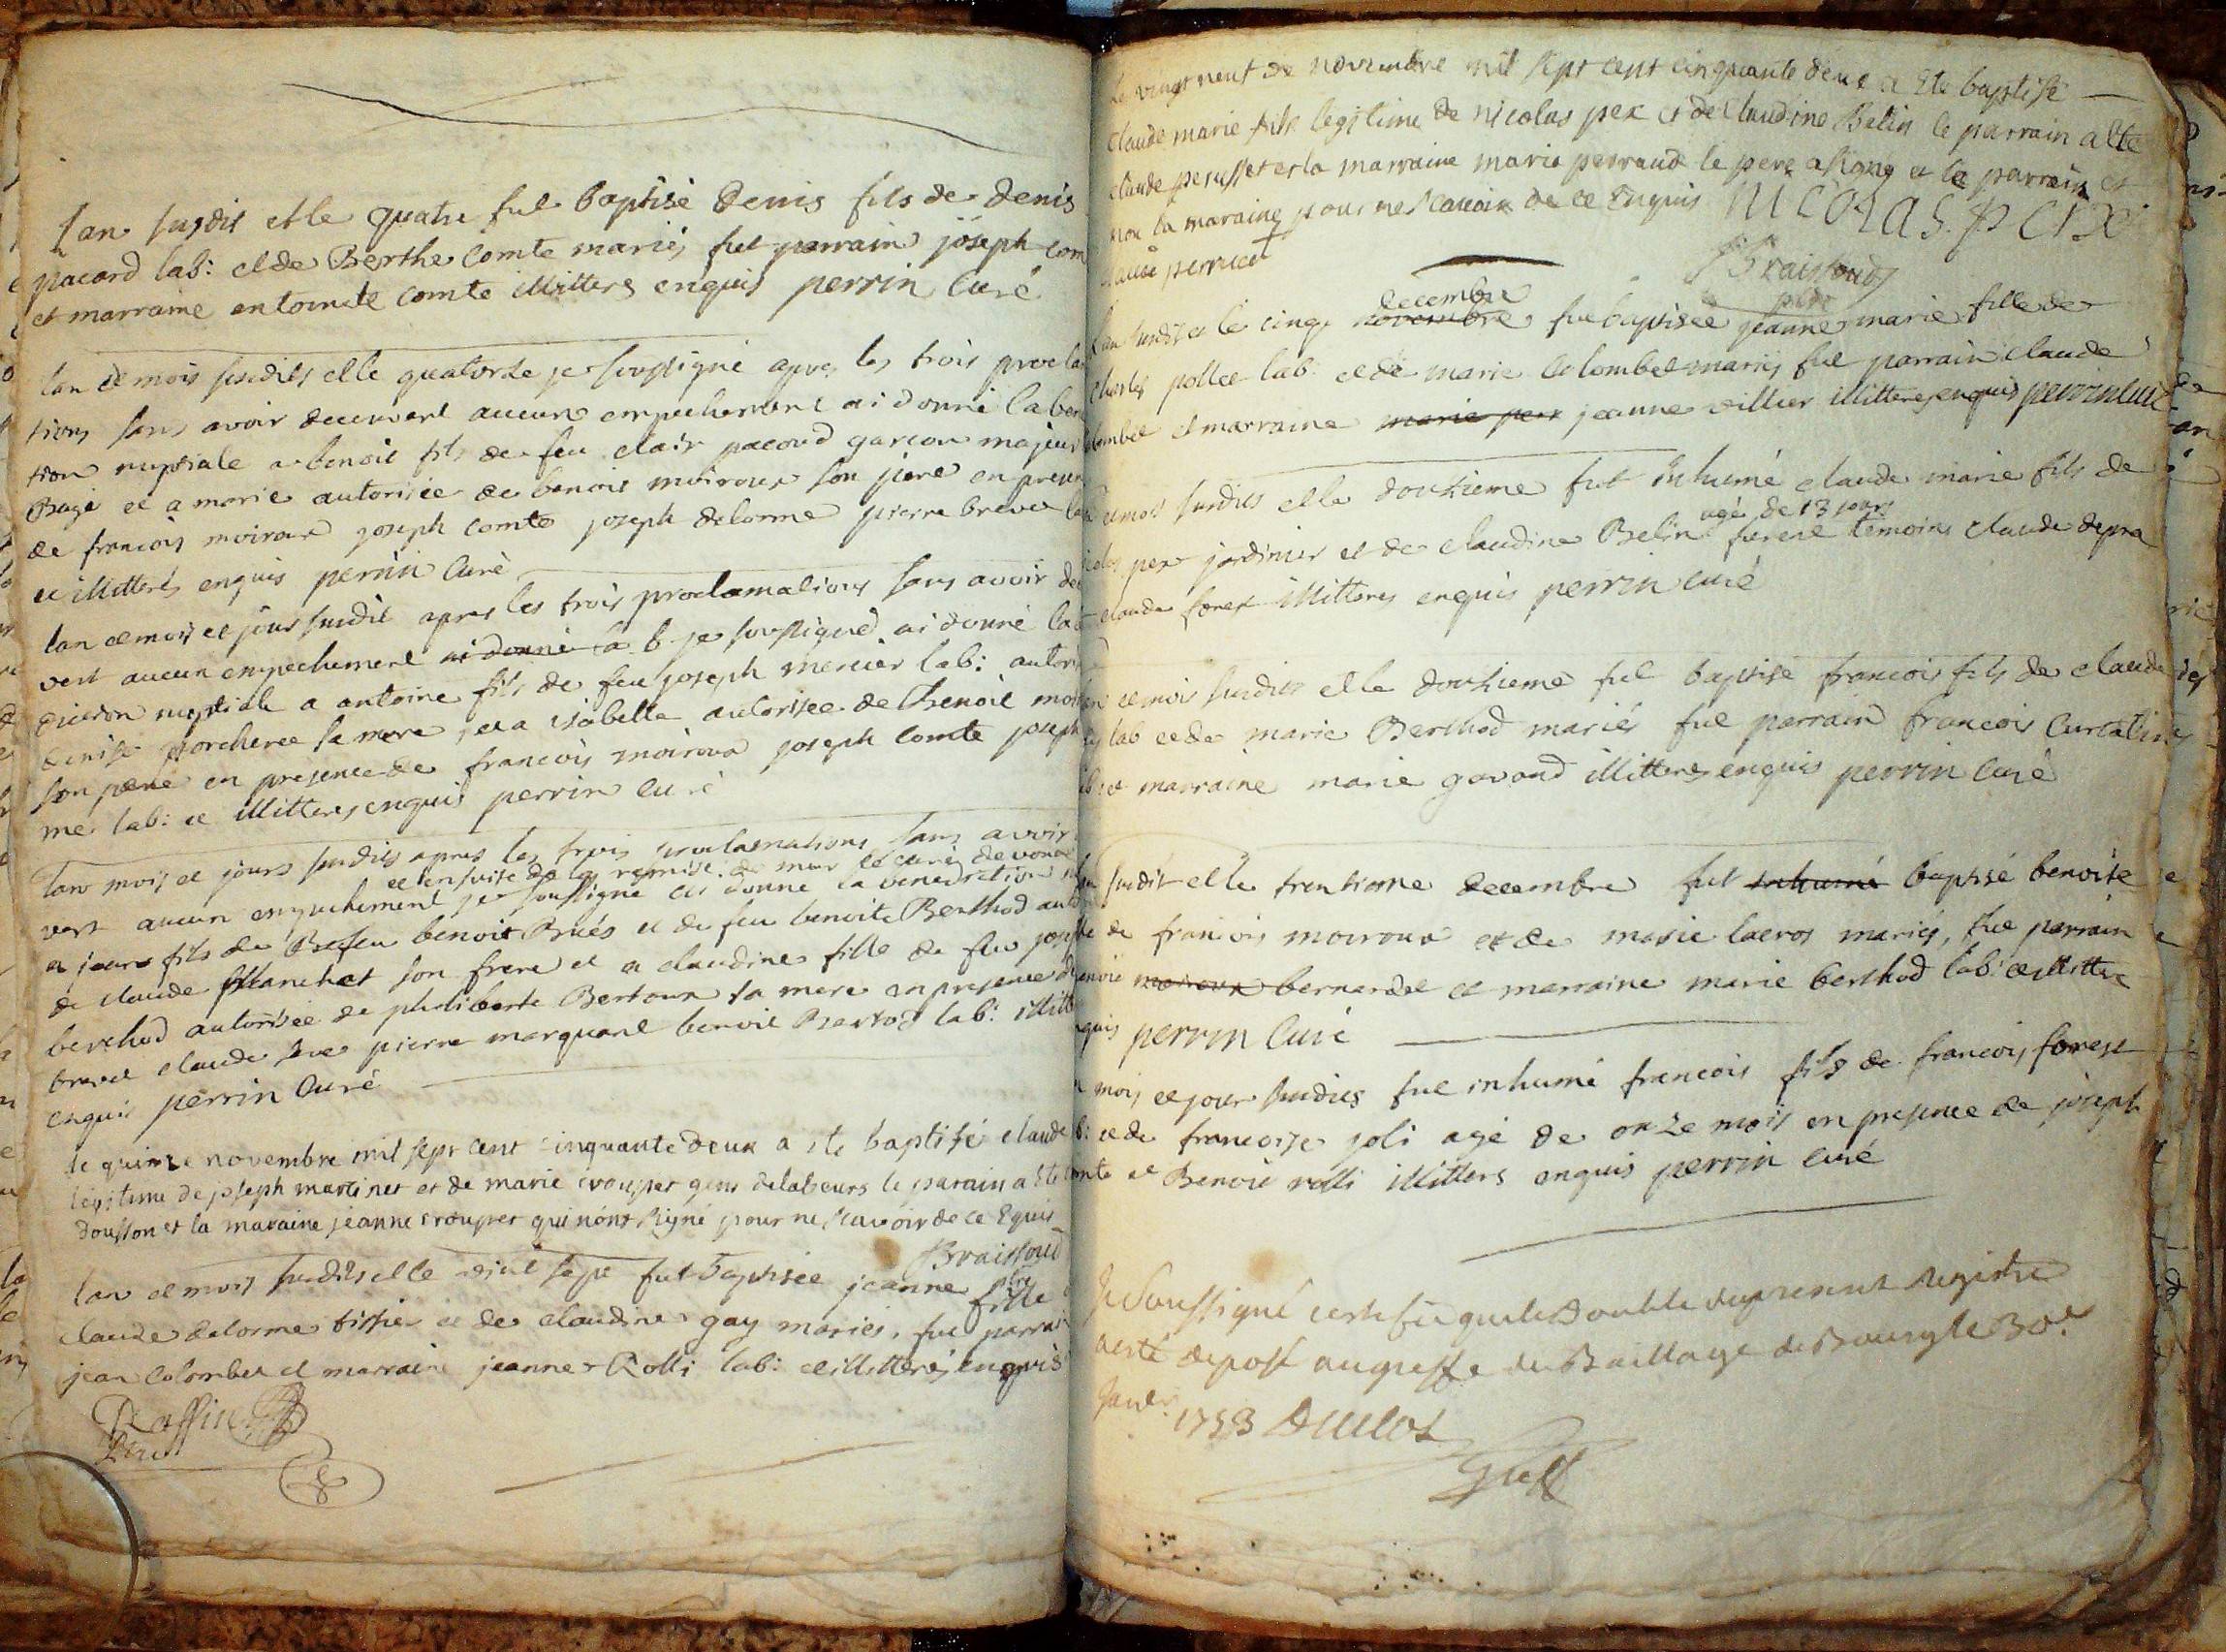 lan susdit et le quatre fut baptisé denis fils de denis
pacard lab: et de Berthe comte mariés fut parrain joseph com
et marraine antoinete comte illitterés enquis perrin Curé
lan et mois susdits et le quatorze je soussigné apres les trois procla
tions sans avoir decouvert aucun empechement ai donné la bene
tion nuptiale a benoit fils de feu clair pacoud garcon majeur
Bagé et a marie autorisée de benois moiroux son pere en presen
de francois moiroux joseph comte joseph delorme pierre brevet lab
et illitterés enquis perrin Curé
lan et mois et jour susdit apres les trois proclamations sans avoir de
vert aucun empechement ai donné la b je soussigné ai donné la
diction nuptiale a antoine fils de feu joseph mercier lab: autori
denise porcheree sa mere et a isabelle autorisee de Benoit moi
son pere en presence de francois moiroux joseph comte joseph
me lab: et illitterés enquis perrin curé
lan mois et jours susdits apres les trois proclamations sans avoir
et ensuite de la remise de mr le curé de vona
vert aucun empechement je soussigné ai donné la benediction
a jean fils de feu benoit Brués et de feu benoite Berthod
de claude Blanchet son frere et a claudine fille de feu joseph
berthod autorisée de philiberte Bertoux sa mere en presence de
brevet claude pierre marquant benoit Bertod lab: illitt
enquis perrin Curé
le quinze novembre mil sept cent cinquante deux a ete baptisé claude
legitime de joseph martinet et de marie crouset gens delabeurs le parain a ete
dousson et la maraine jeanne crouset qui nont signé pour ne scavoir de ce Equis
Braissoud
lan et mois susdits et le vint sept fut baptisée jeanne fille
claude delorme tissier et de claudine gay mariés, fut parrai
jean colombet et marraine jeanne Rolli lab: et illitterés enquis
Raffin
le vingt neuf de novembre mil sept cent cinquante deux a ete baptisé
claude marie fils legitime de nicolas pex et de Claudine Belin le parrain a ete
claude perusset et la marraine marie perraud le pere a signé et le parrain et
non la maraine pour ne scavoir de ce Enquis NICOLAS PEIX
claude perruset
Braissoud
lan susdit et le cinq novembre decembre fut baptisee jeanne marie fille de
charles pollet lab: et de marie colombet mariés fut parrain claude
lombet et marraine marie pex jeanne villier illitterés enquis perrin curé
et mois susdits et le douzieme fut inhumé claude marie fils de
agé de 13 jours
nicolas pex jardinier et de claudine Belin furent temoins claude depra
claude foret illitterés enquis perrin curé
et mois susdits et le douzieme fut baptisé francois fils de claude
lab et de marie Berthod mariés fut parrain francois Curtalin
et marraine marie gavand illitterés enquis perrin curé
susdit et le trentieme decembre fut inhumé baptisé benoite
de francois moiroux et de marie lacros mariés, fut parrain
benoit moiroux bernardet et marraine marie berthod lab: et illittere
enquis perrin Curé
mois et jour susdits fut inhumé francois fils de francois forest
et de francoise joli agé de onze mois en presence de joseph
comte et Benoit rolli illitterés enquis perrin curé
Je Soussigné certifie que le Double du present Registre
a esté deposé au greffe du Baillage de Bourg le 30e
Janvr 1753
Greff